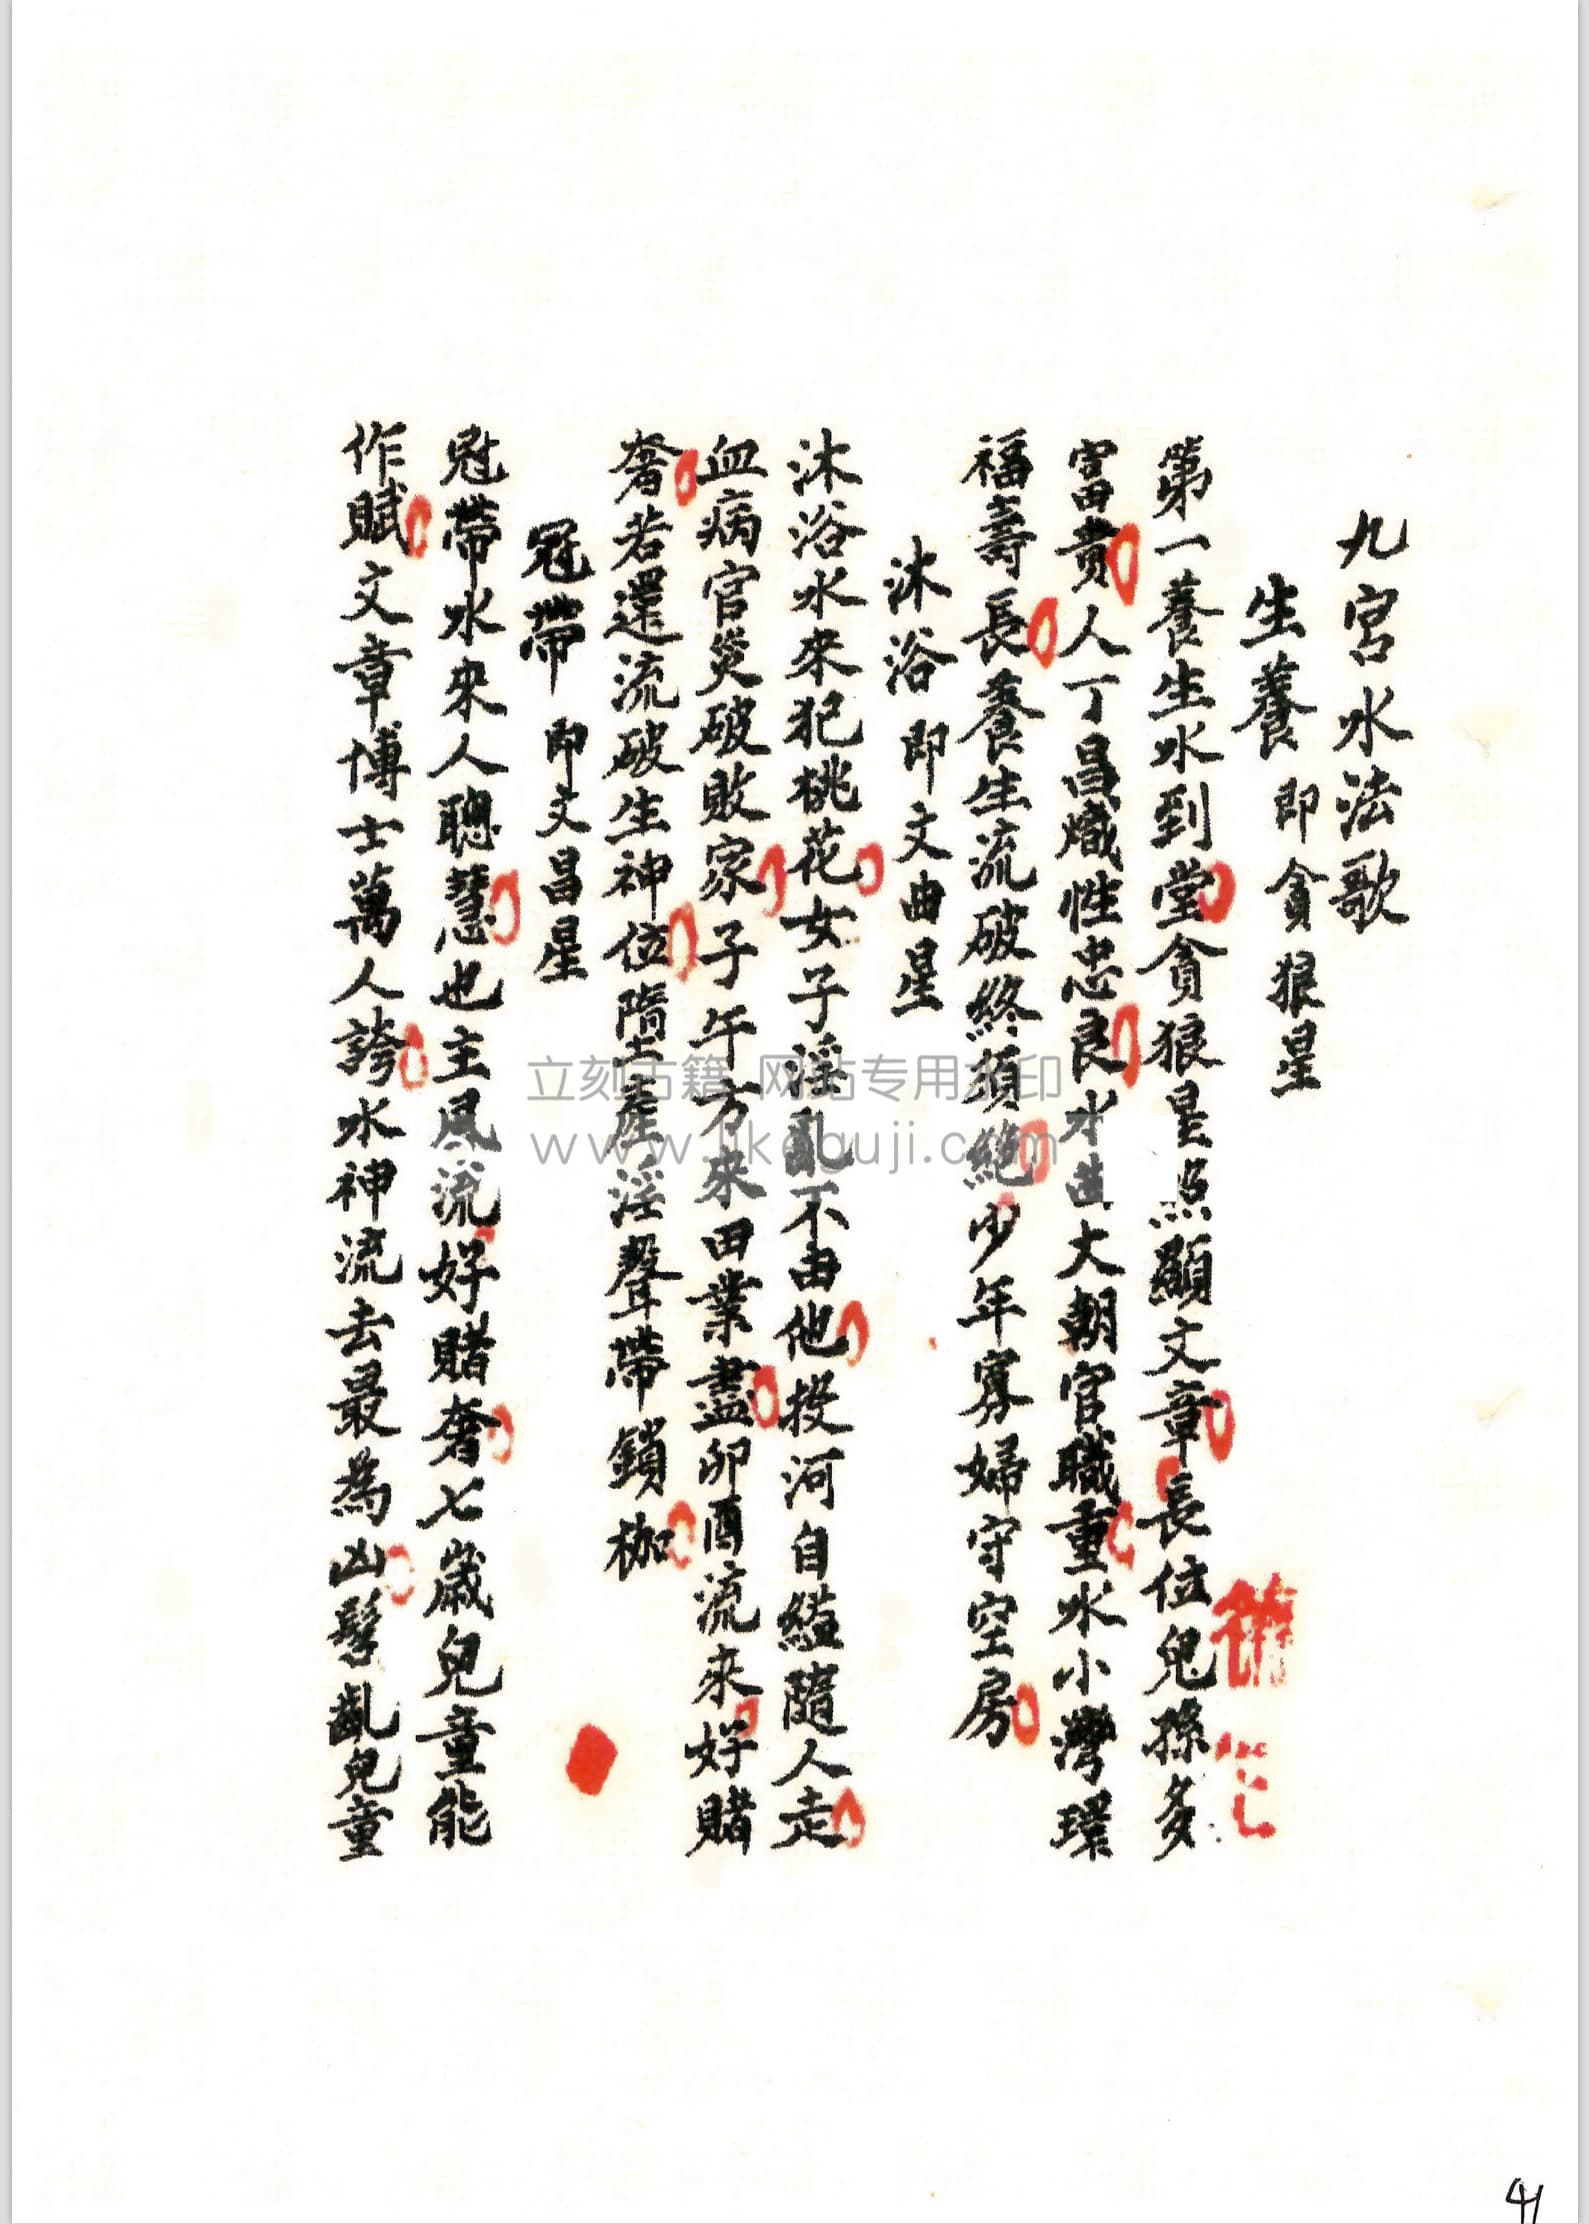 九宮水法歌
生養 即貪狼星
第一養生水到堂貪狼星照顯文章長位兒孫多
富貴人丁昌熾性忠良水曲大朝官職重水小灣環
福壽長養生流破終須絕少年寡婦守空房
沐浴 即文曲星
沐浴水來犯桃花女子淫亂不由他投河自縊隨人走
血病官災破敗家子午方來田業盡卯酉流來好賭
奢若還流破生神位墮產淫聲帶鎖枷
冠帶 即文昌星
冠帶水來人聰慧也主風流好賭奢七歲兒童能
作賦文章博士萬人誇水神流去最為凶髫齔兒童
立刻古籍 网站专用水印
www.likeguji.com
41